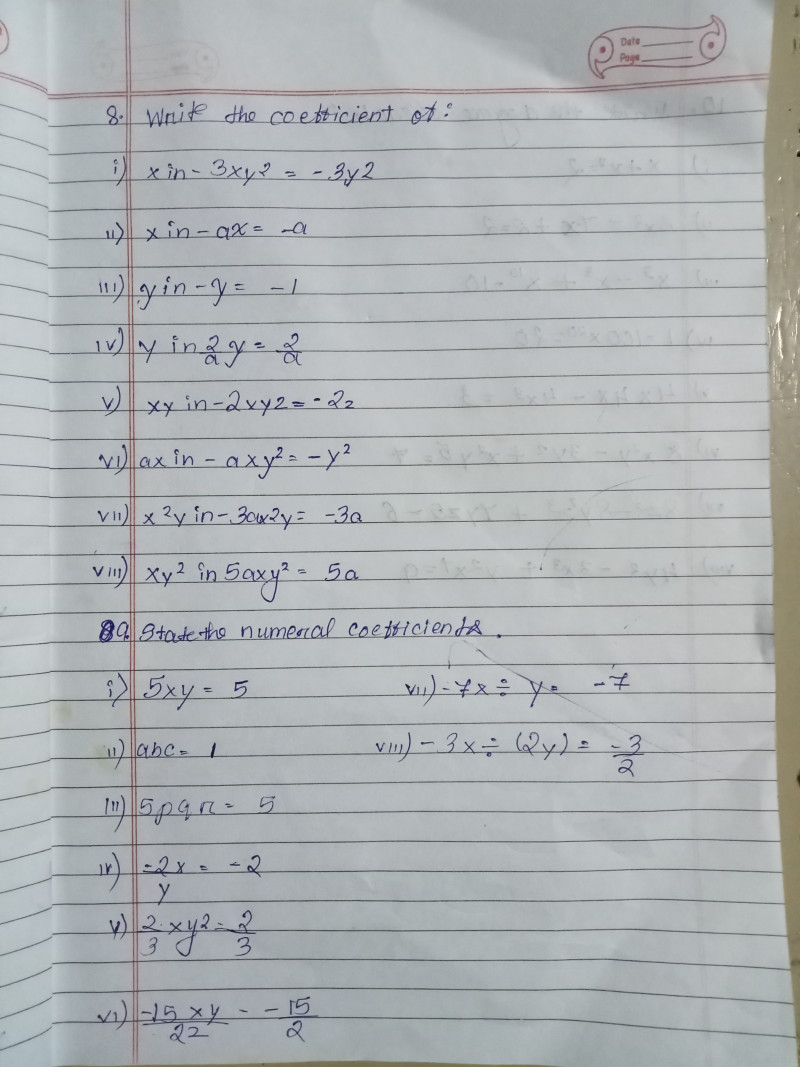 Date
Page
8. Write the coefficient of:
i) x in - 3xy2 = - 3y2
ii) x in - ax = -a
iii) y in - y = -1
iv) y in 2/a y = 2/a
v) xy in - 2xyz = - 2z
vi) ax in - axy² = - y²
vii) x²y in - 3ax2y = -3a
viii) xy² in 5axy² = 5a
9. State the numeral coefficients.
i) 5xy = 5 vii) - 7x ÷ y = -7
ii) abc = 1 viii) - 3x ÷ (2y) = -3/2
iii) 5pqr = 5
iv) -2x/y = -2
v) 2/3 xy2 = 2/3
vi) -15xy/2z = -15/2